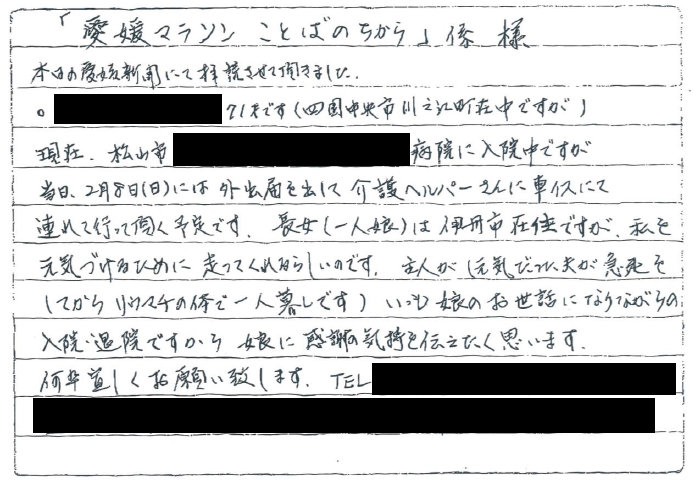 「愛媛マラソン ことばのちから」係 様
本日の愛媛新聞にて拝読させて頂きました.
○ 71才です(四国中央市川之江町在中ですが)
現在、松山市 病院に入院中ですが
当日、2月8日(日)には外出届を出して 介護ヘルパーさんに車イスにて
連れて行って頂く予定です. 長女(一人娘)は伊丹市在住ですが、私を
元気づけるために 走ってくれるらしいのです. 主人が(元気だった夫が急死を
してから リウマチの体で一人暮しです)いつも娘のお世話になりながらの
入院・退院ですから 娘に感謝の気持を伝えたく思います.
何卒宜しくお願い致します. TEL